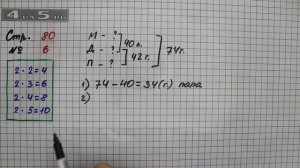 4 на 5.ru
Стр. 80
№ 6
2 · 2 = 4
2 · 3 = 6
2 · 4 = 8
2 · 5 = 10
М – ?
Д – ?
П – ?
40 л.
42 г.
74 г.
1) 74 – 40 = 34 (г.) папа.
2)